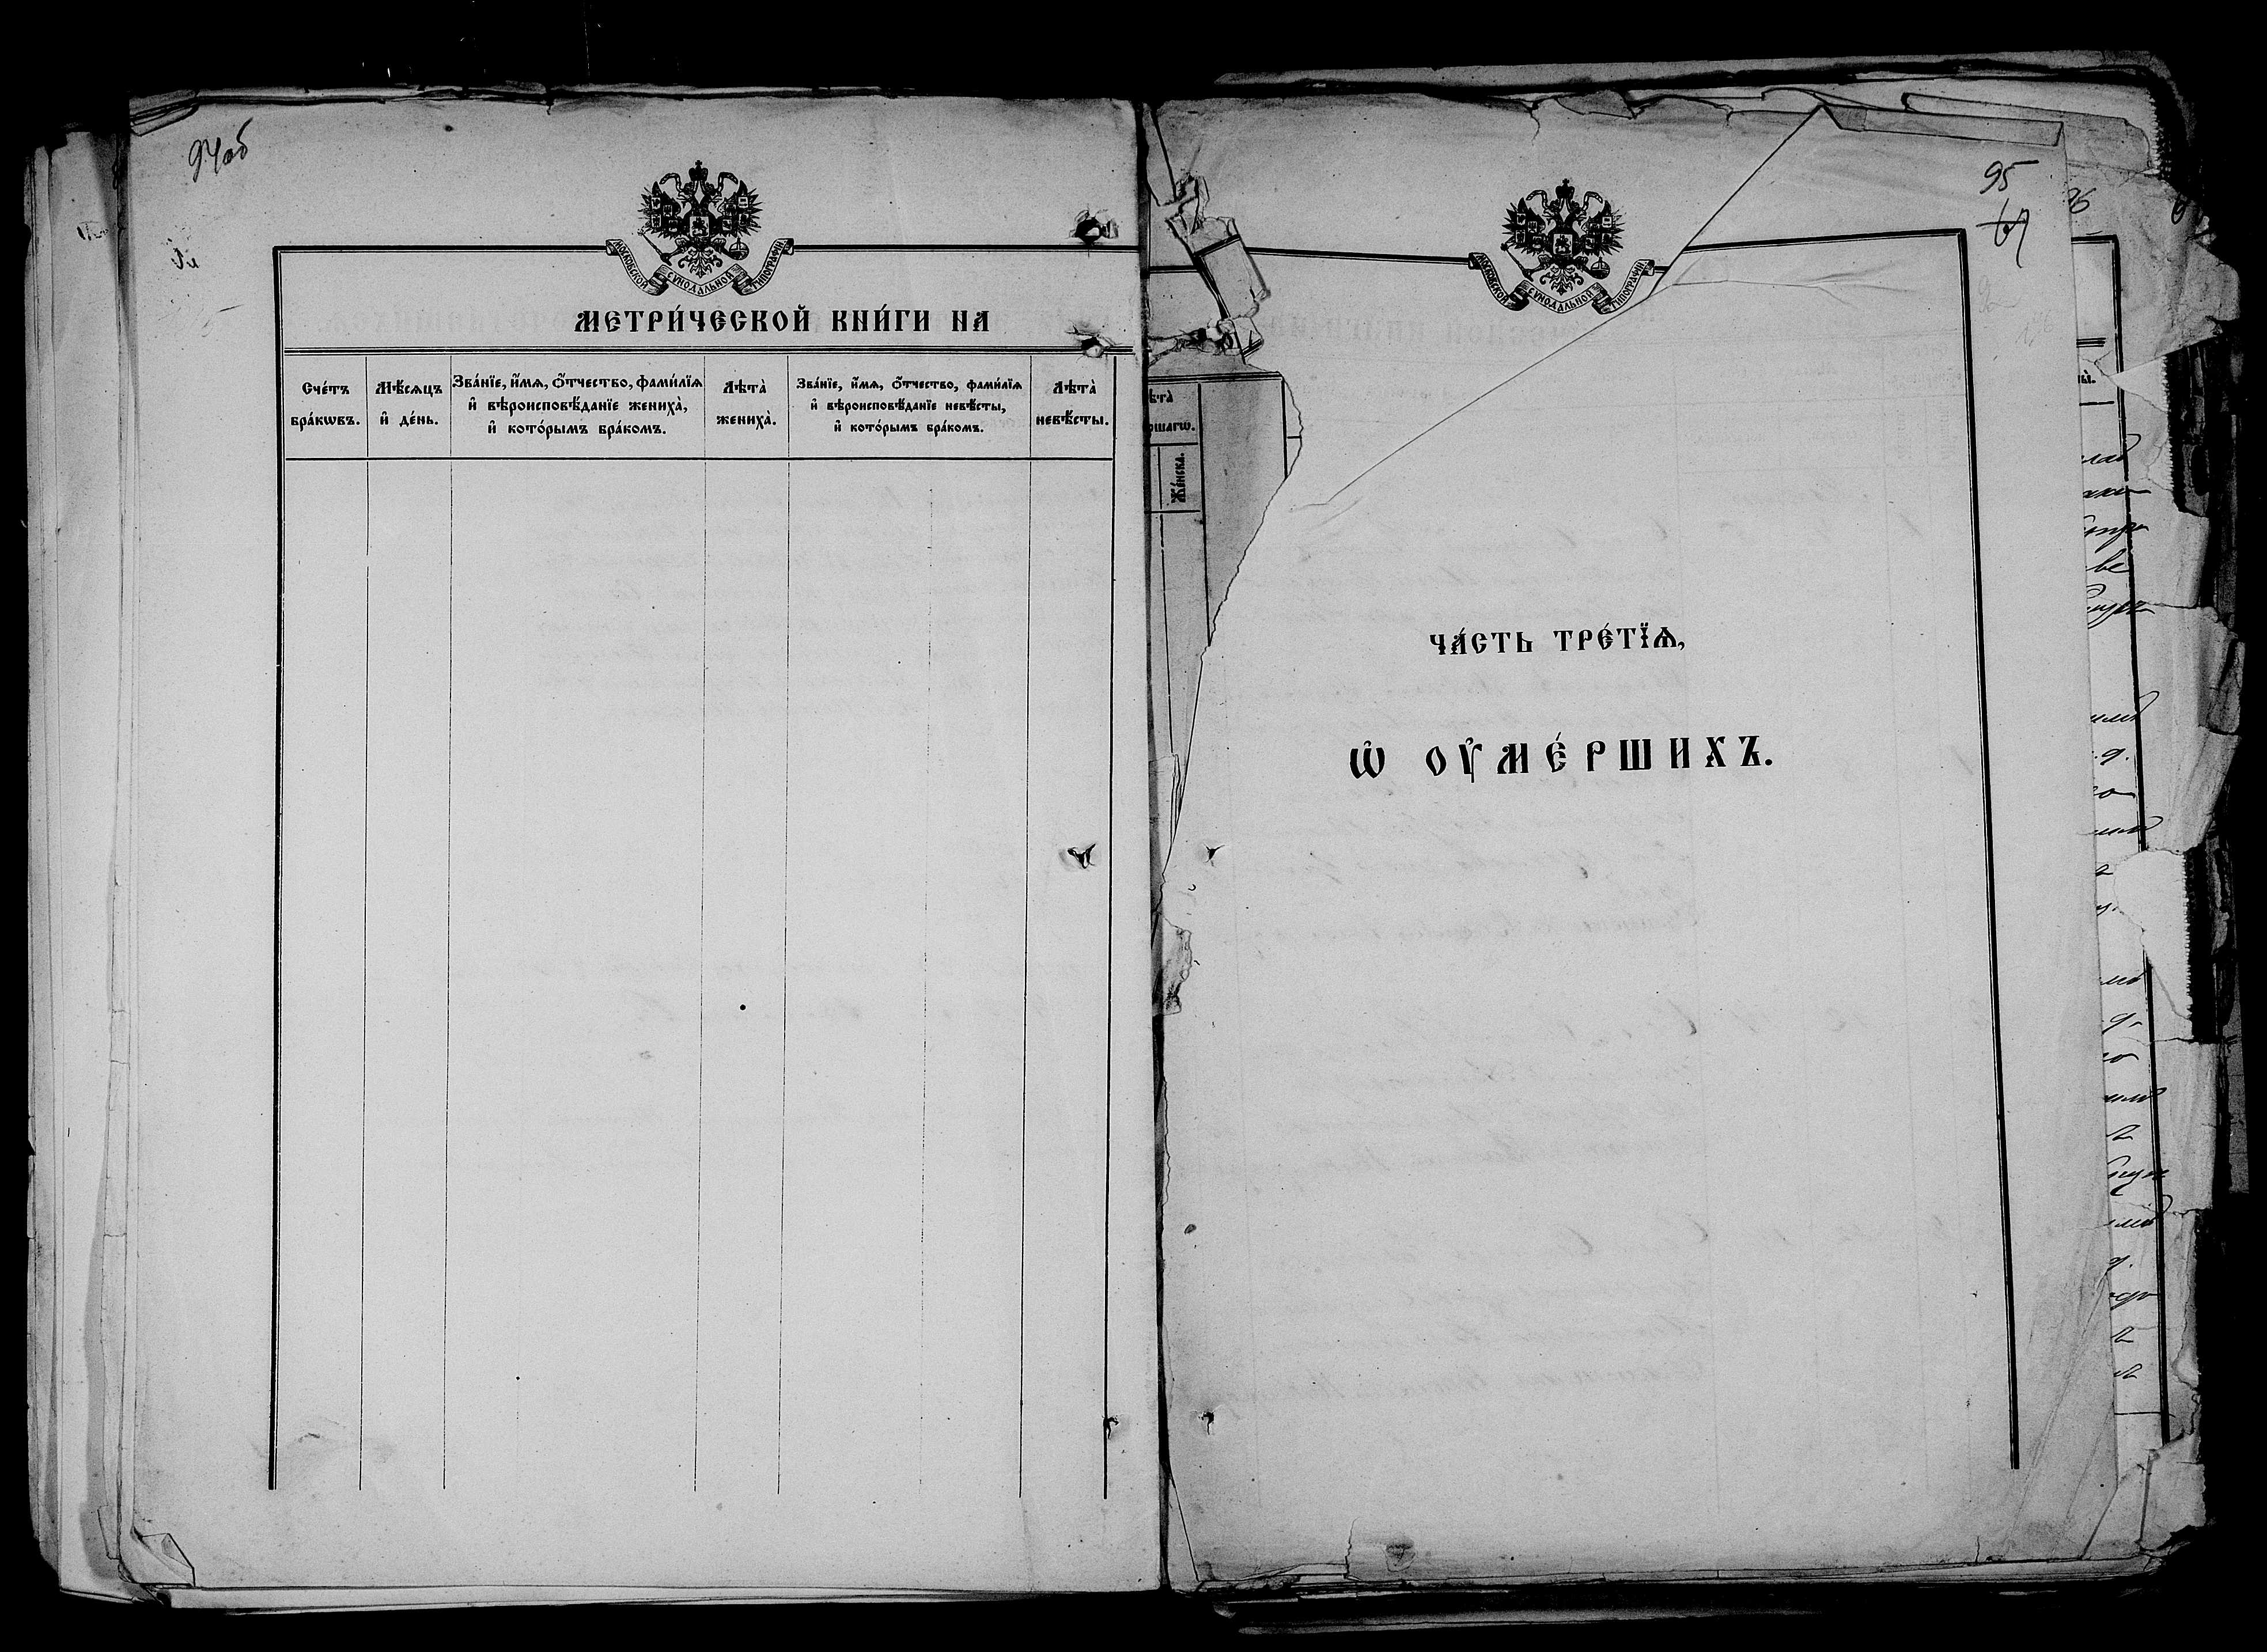 94об
МОСКОВСКОЙ СѴНОДАЛЬНОЙ ТИПОГРАФІИ
МЕТРИ́ЧЕСКОЙ КНИ́ГИ НА
Сче́тъ
бра́кѡвъ.
Мѣ́сѧцъ
и҆ де́нь.
Зва́нїе, и҆́мѧ, ѻ҆́тчество, фами́лїѧ
и҆ вѣроисповѣ́данїе жениха̀,
и҆ кото́рымъ бра́комъ.
Лѣта̀
жениха̀.
Зва́нїе, и҆́мѧ, ѻ҆́тчество, фами́лїѧ
и҆ вѣроисповѣ́данїе невѣ́сты,
и҆ кото́рымъ бра́комъ.
Лѣта̀
невѣ́сты.
95
МОСКОВСКОЙ СѴНОДАЛЬНОЙ ТИПОГРАФІИ
ѣта̀
ршагѡ.
Же́нска.
ЧА́СТЬ ТРЕ́ТЇѦ,
Ѡ҆ ОУ҆МЕ́РШИХЪ.